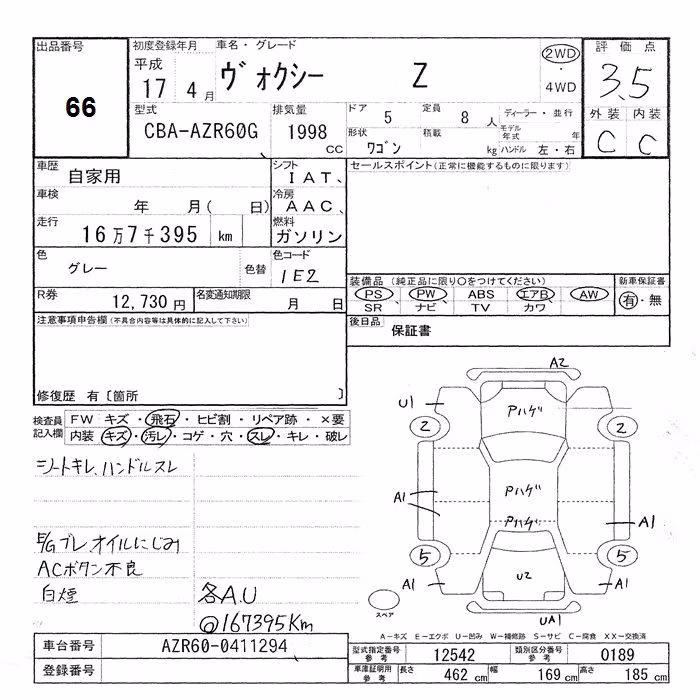 出品番号
66
初度登録年月
平成
17 4月
車名・グレード
ヴォクシー Z
2WD
・
4WD
評価点
3.5
外装 内装
C C
型式
CBA-AZR60G
排気量
1998 CC
ドア 5
定員 8人
ディーラー・並行
形状 ワゴン
積載 kg
モデル年式 年
ハンドル 左・右
車歴 自家用
シフト IAT、
セールスポイント(正常に機能するものに限ります)
車検 年 月( 日)
冷房 AAC、
走行 16万7千395 km
燃料 ガソリン
色 グレー 色替
色コード 1E2
装備品 (純正品に限り○をつけてください)
新車保証書
PS PW ABS エアB AW
SR ナビ TV カワ
有・無
R券 12,730円
名変通知期限 月 日
後日品 保証書
注意事項申告欄(不具合内容等は具体的に記入して下さい)
修復歴 有〔箇所 〕
検査員記入欄
FW キズ・飛石・ヒビ割・リペア跡・×要
内装 キズ・汚レ・コゲ・穴・スレ・キレ・破レ
シートキレ、ハンドルスレ
E/Gブレ オイルにじみ
ACボタン不良
白煙 各A.U
@167395Km
A2
U1
Pハゲ
2 2
A1
Pハゲ
Pハゲ
A1
5 5
A1 U2 A1
UA1
スペア
A-キズ E-エクボ U-凹み W-補修跡 S-サビ C-腐食 XX-交換済
車台番号 AZR60-0411294
登録番号
型式指定番号 参考 12542
類別区分番号 参考 0189
車庫証明用 参考
長さ 462 cm 幅 169 cm 高さ 185 cm